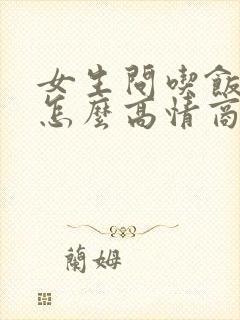 女生問喫飯
怎麼高情商
蘭姆